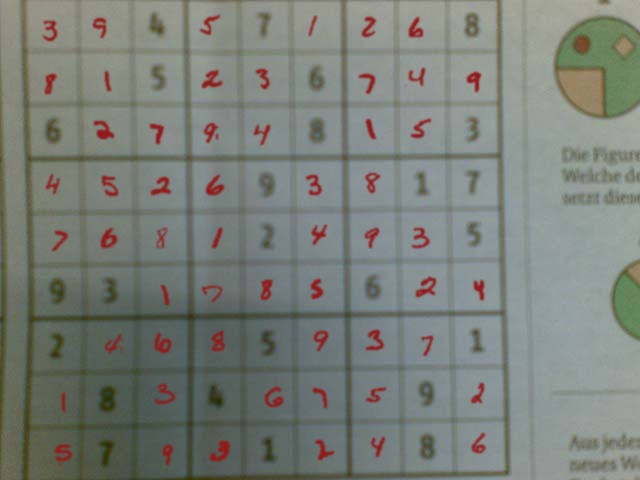 3 9 4 5 7 1 2 6 8
8 1 5 2 3 6 7 4 9
6 2 7 9 4 8 1 5 3
4 5 2 6 9 3 8 1 7
7 6 8 1 2 4 9 3 5
9 3 1 7 8 5 6 2 4
2 4 6 8 5 9 3 7 1
1 8 3 4 6 7 5 9 2
5 7 9 3 1 2 4 8 6
Die Figure
Welche de
setzt diese
Aus jedes
neues Wo